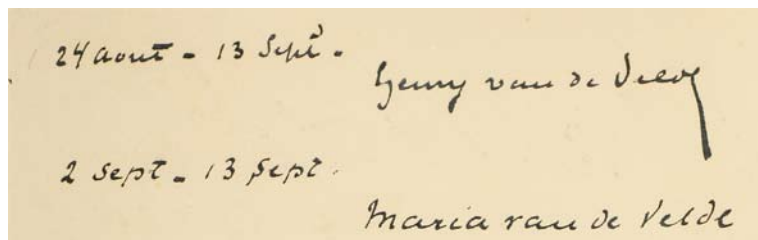 24 aout - 13 Sept.
Henry van de Velde
2 Sept - 13 Sept.
Maria van de Velde